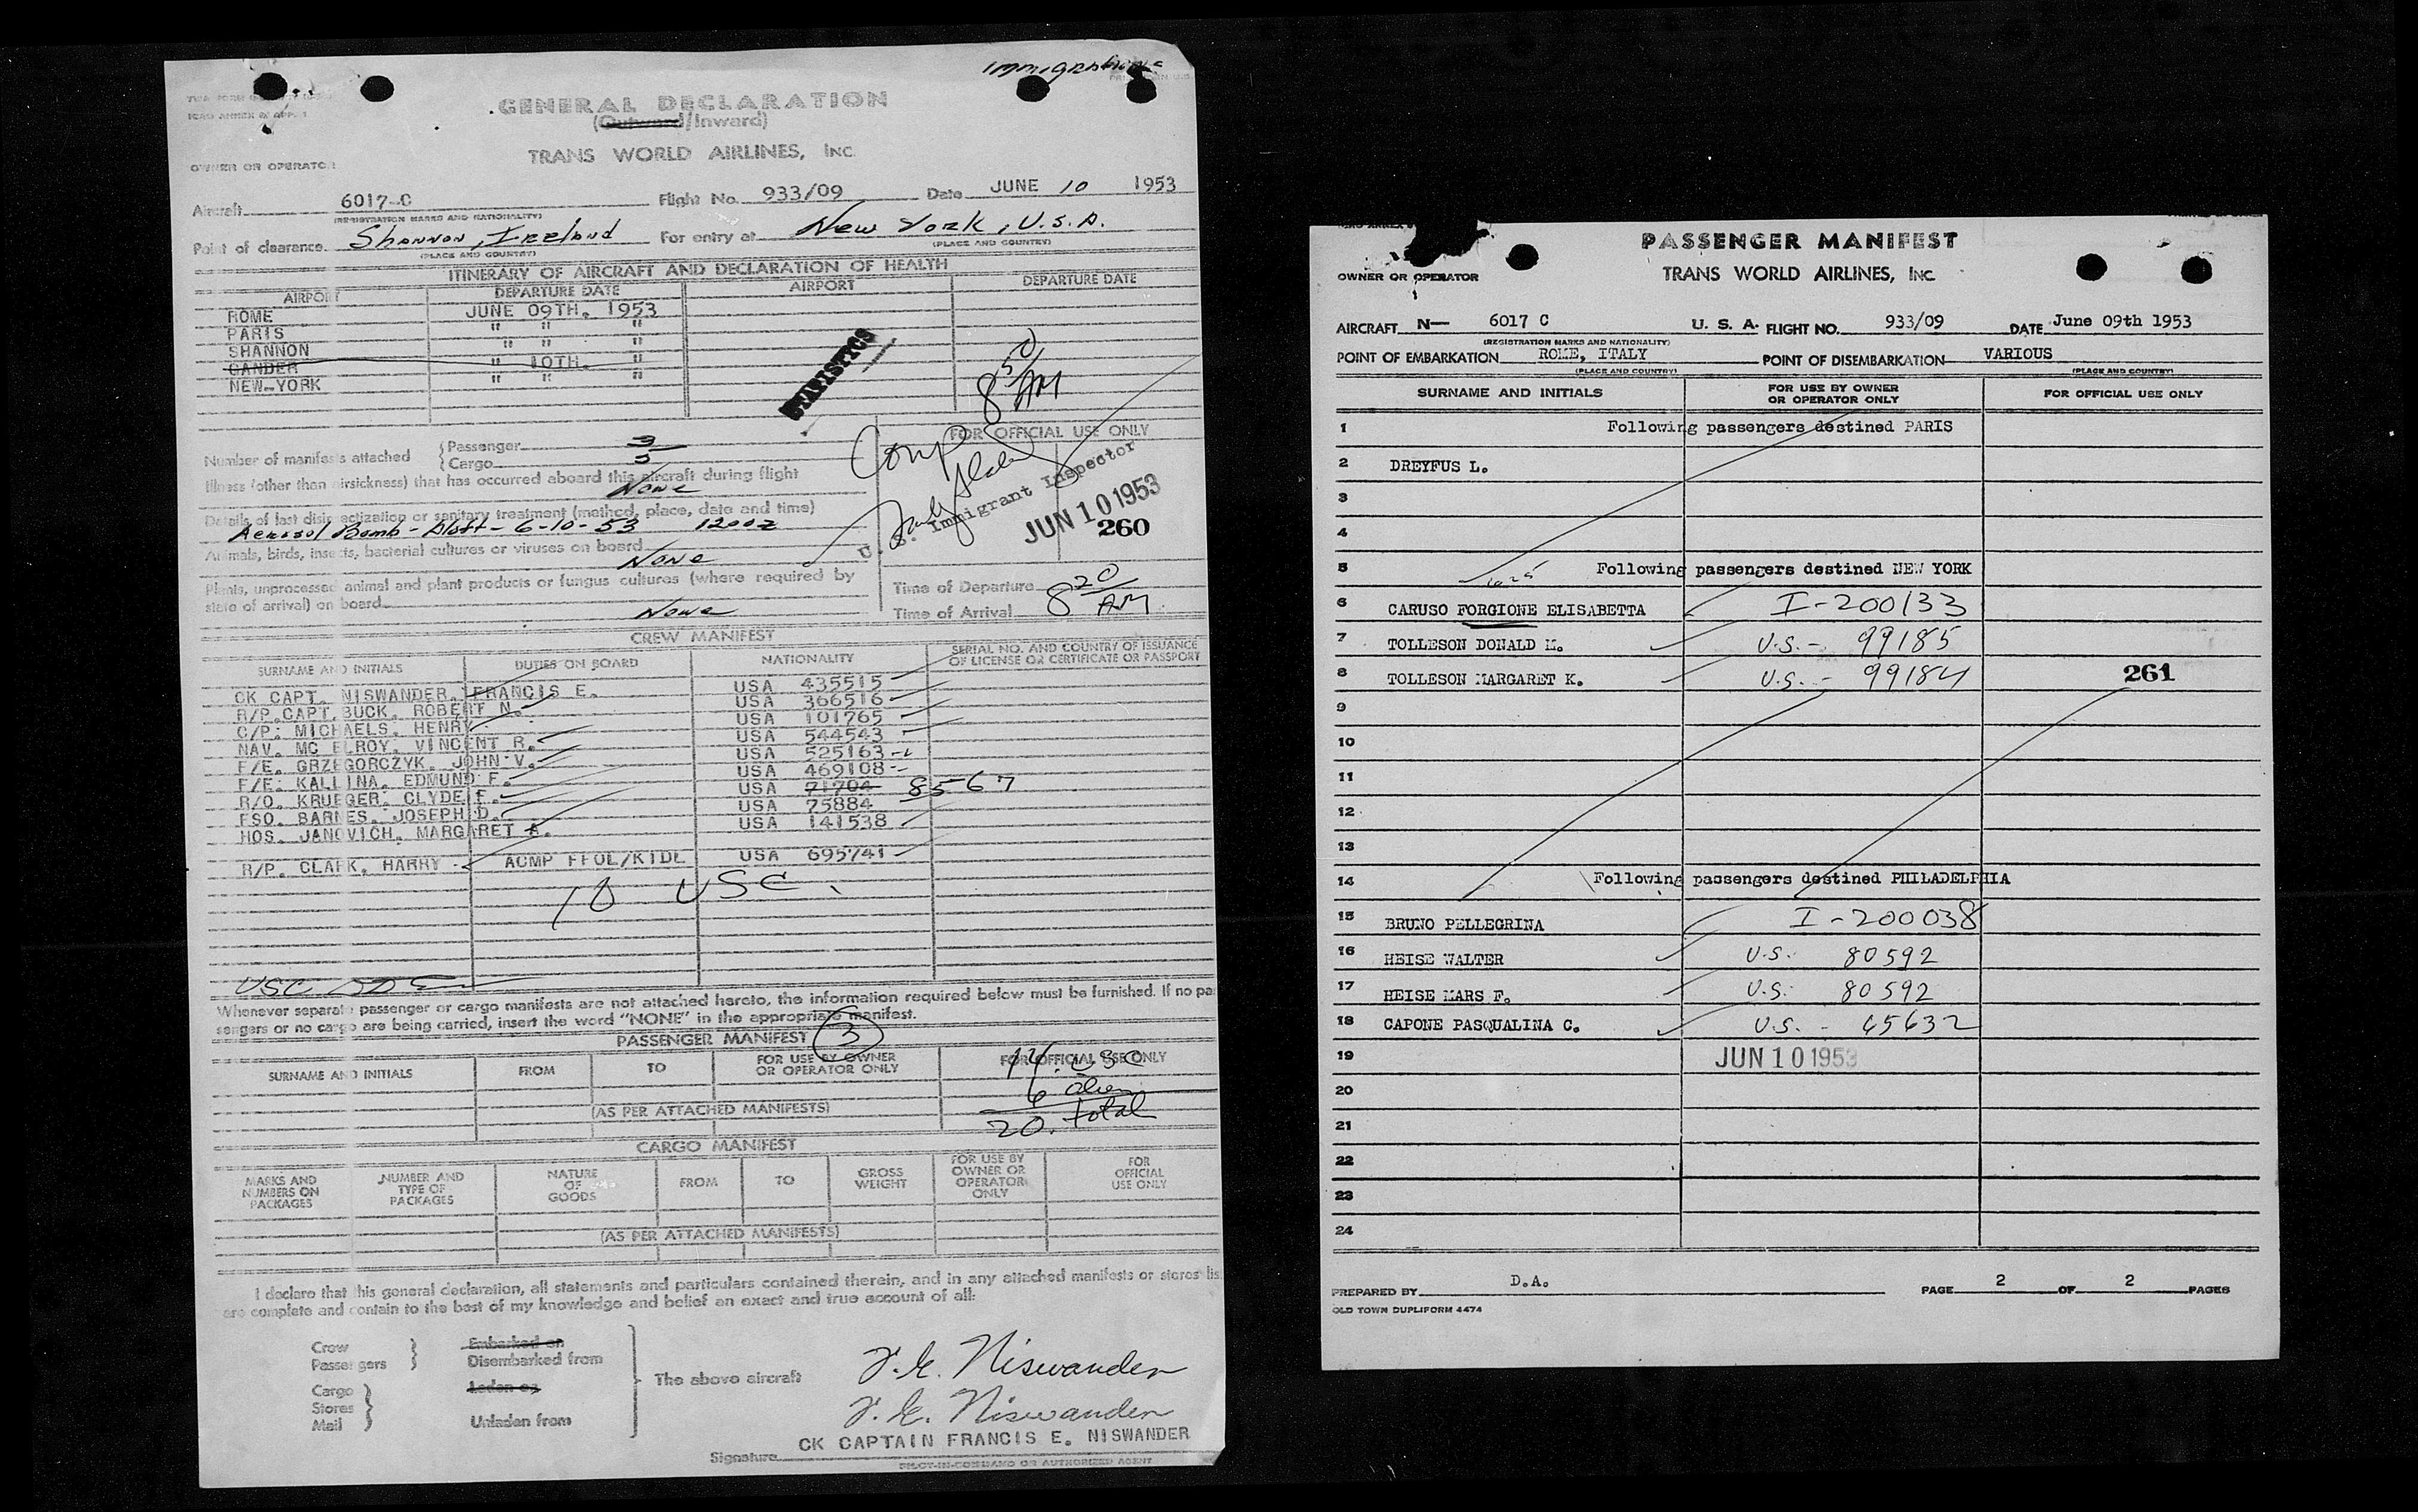 Immigrations
TWA FORM
ICAO ANNEX 9, APP. 1
GENERAL DECLARATION
(Outward/Inward)
OWNER OR OPERATOR
TRANS WORLD AIRLINES, INC.
Aircraft 6017-C Flight No. 933/09 Date JUNE 10 1953
(REGISTRATION MARKS AND NATIONALITY)
Point of clearance Shannon, Ireland For entry at New York, U.S.A.
(PLACE AND COUNTRY) (PLACE AND COUNTRY)
ITINERARY OF AIRCRAFT AND DECLARATION OF HEALTH
AIRPORT DEPARTURE DATE AIRPORT DEPARTURE DATE
ROME JUNE 09TH. 1953
PARIS " " "
SHANNON " " "
GANDER " 10TH. "
NEW-YORK " " "
STATISTICS
8 50 AM
Number of manifests attached { Passenger 3
{ Cargo 3
Illness (other than airsickness) that has occurred aboard this aircraft during flight
None
Details of last disinsectization or sanitary treatment (method, place, date and time)
Aerosol Bomb - Aloft - 6-10-53 1200z
Animals, birds, insects, bacterial cultures or viruses on board
None
Plants, unprocessed animal and plant products or fungus cultures (where required by
state of arrival) on board
None
FOR OFFICIAL USE ONLY
Comp
U. S. Immigrant Inspector
JUN 10 1953
260
Time of Departure
Time of Arrival 8 20 AM
CREW MANIFEST
SURNAME AND INITIALS DUTIES ON BOARD NATIONALITY SERIAL NO. AND COUNTRY OF ISSUANCE
OF LICENSE OR CERTIFICATE OR PASSPORT
CK CAPT. NISWANDER, FRANCIS E. USA 435515
R/P.CAPT.BUCK. ROBERT N. USA 366516
C/P: MICHAELS. HENRY USA 101765
NAV. MC ELROY. VINCENT R. USA 544543
F/E. GRZEGORCZYK. JOHN V. USA 525163
F/E: KALLINA. EDMUND F. USA 469108
R/O. KRUEGER. CLYDE F. USA 71704 8567
FSO. BARNES. JOSEPH D. USA 75884
HOS. JANOVICH. MARGARET A. USA 141538
R/P. CLARK, HARRY ACMP FFOL/KIDL USA 695741
10 USC.
USC
Whenever separate passenger or cargo manifests are not attached hereto, the information required below must be furnished. If no pa
sengers or no cargo are being carried, insert the word "NONE" in the appropriate manifest.
PASSENGER MANIFEST 3
SURNAME AND INITIALS FROM TO FOR USE BY OWNER
OR OPERATOR ONLY FOR OFFICIAL USE ONLY
14 USC
6 alien
20. total
(AS PER ATTACHED MANIFESTS)
CARGO MANIFEST
MARKS AND
NUMBERS ON
PACKAGES NUMBER AND
TYPE OF
PACKAGES NATURE
OF
GOODS FROM TO GROSS
WEIGHT FOR USE BY
OWNER OR
OPERATOR
ONLY FOR
OFFICIAL
USE ONLY
(AS PER ATTACHED MANIFESTS)
I declare that this general declaration, all statements and particulars contained therein, and in any attached manifests or stores lis
are complete and contain to the best of my knowledge and belief an exact and true account of all:
Crew } Embarked on
Passengers } Disembarked from
Cargo } Laden on
Stores }
Mail } Unladen from
The above aircraft
F. E. Niswander
F. E. Niswander
CK CAPTAIN FRANCIS E. NISWANDER
Signature
PILOT-IN-COMMAND OR AUTHORIZED AGENT
PASSENGER MANIFEST
OWNER OR OPERATOR TRANS WORLD AIRLINES, INC.
AIRCRAFT N— 6017 C U. S. A. FLIGHT NO. 933/09 DATE June 09th 1953
(REGISTRATION MARKS AND NATIONALITY)
POINT OF EMBARKATION ROME, ITALY POINT OF DISEMBARKATION VARIOUS
(PLACE AND COUNTRY) (PLACE AND COUNTRY)
SURNAME AND INITIALS FOR USE BY OWNER
OR OPERATOR ONLY FOR OFFICIAL USE ONLY
1 Following passengers destined PARIS
2 DREYFUS L.
3
4
5 Following passengers destined NEW YORK
6 CARUSO FORGIONE ELISABETTA I-200133
7 TOLLESON DONALD M. U.S.- 99185
8 TOLLESON MARGARET K. U.S.- 99184 261
9
10
11
12
13
14 Following passengers destined PHILADELPHIA
15 BRUNO PELLEGRINA I-200038
16 HEISE WALTER U.S. 80592
17 HEISE MARS F. U.S. 80592
18 CAPONE PASQUALINA C. U.S. - 65632
19 JUN 10 1953
20
21
22
23
24
PREPARED BY D.A. PAGE 2 OF 2 PAGES
OLD TOWN DUPLIFORM 4474